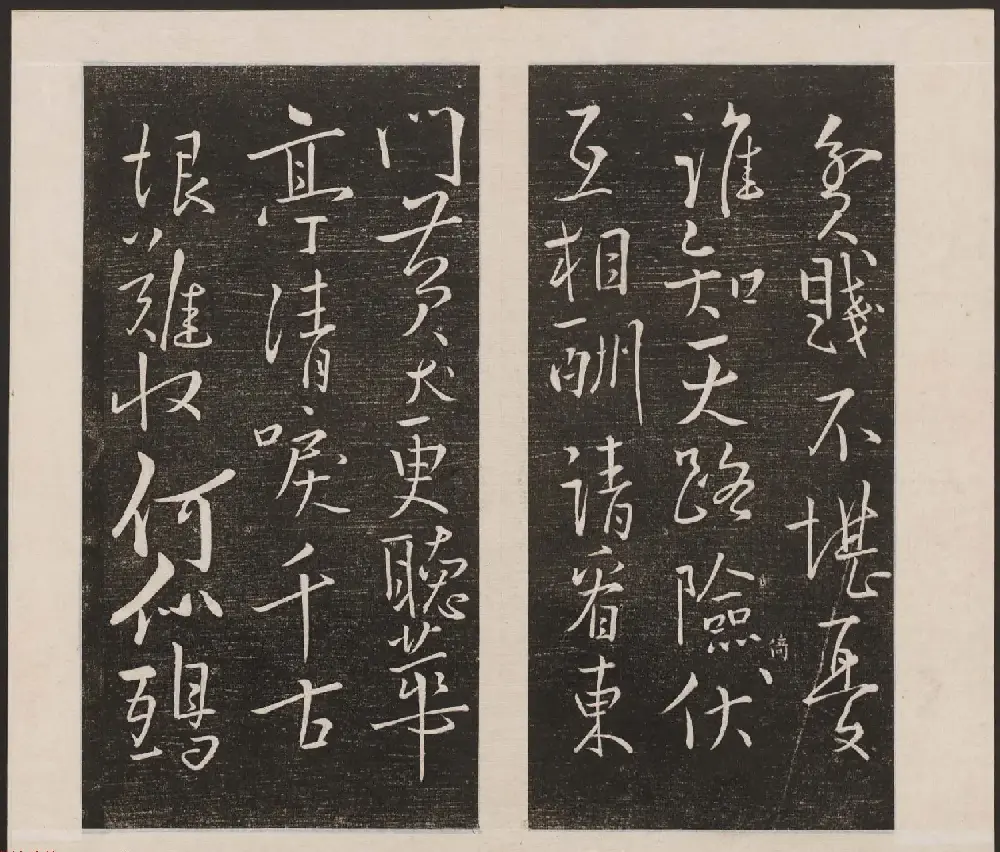 貧賤不堪憂
誰知天路險倚伏
互相酬請看東
門黃犬更聽華
亭清唳千古
恨難收何似鴟